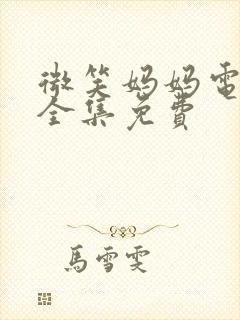 微笑妈妈電
全集免費
馬雪雯